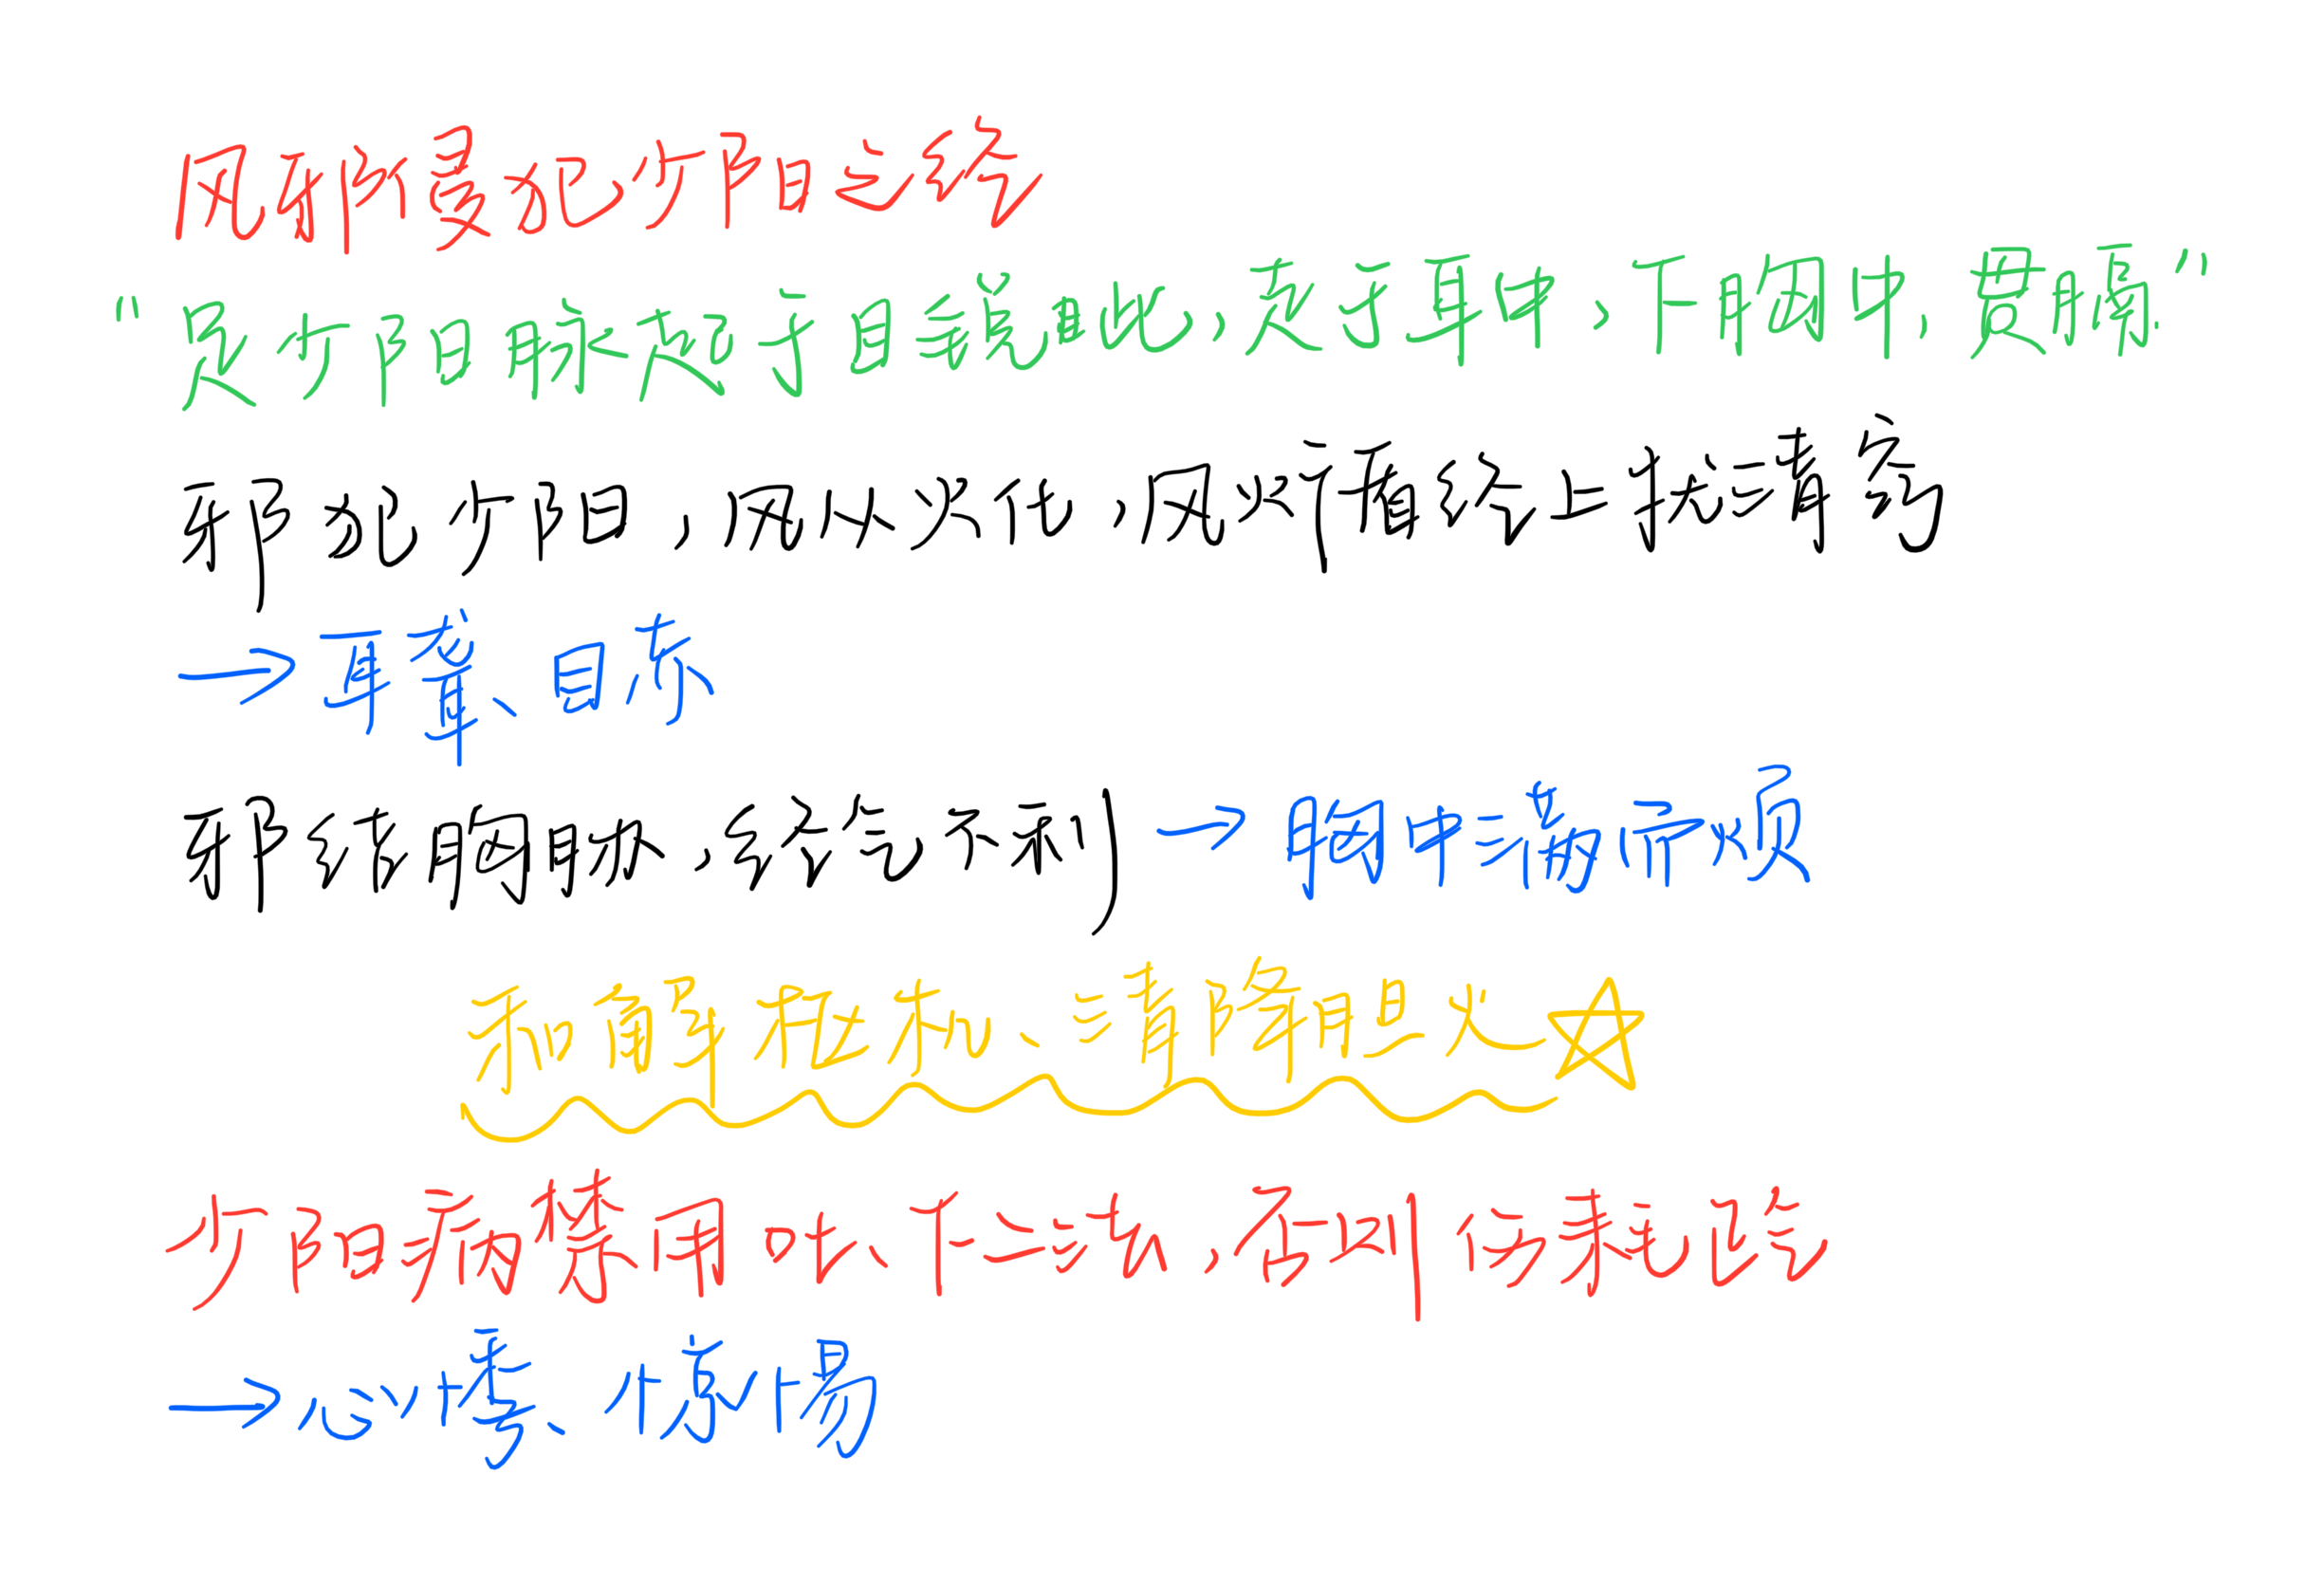 风邪侵犯少阳之经
“足少阳脉起于目锐眦，走于耳中，下胸中，贯膈”
邪犯少阳，风从火化，风火循经上扰清窍
→耳聋、目赤
邪结胸胁，经气不利→胸中满而烦
和解枢机、清降胆火☆
少阳病禁用吐、下之法，否则伤耗阴
→心悸、惊惕